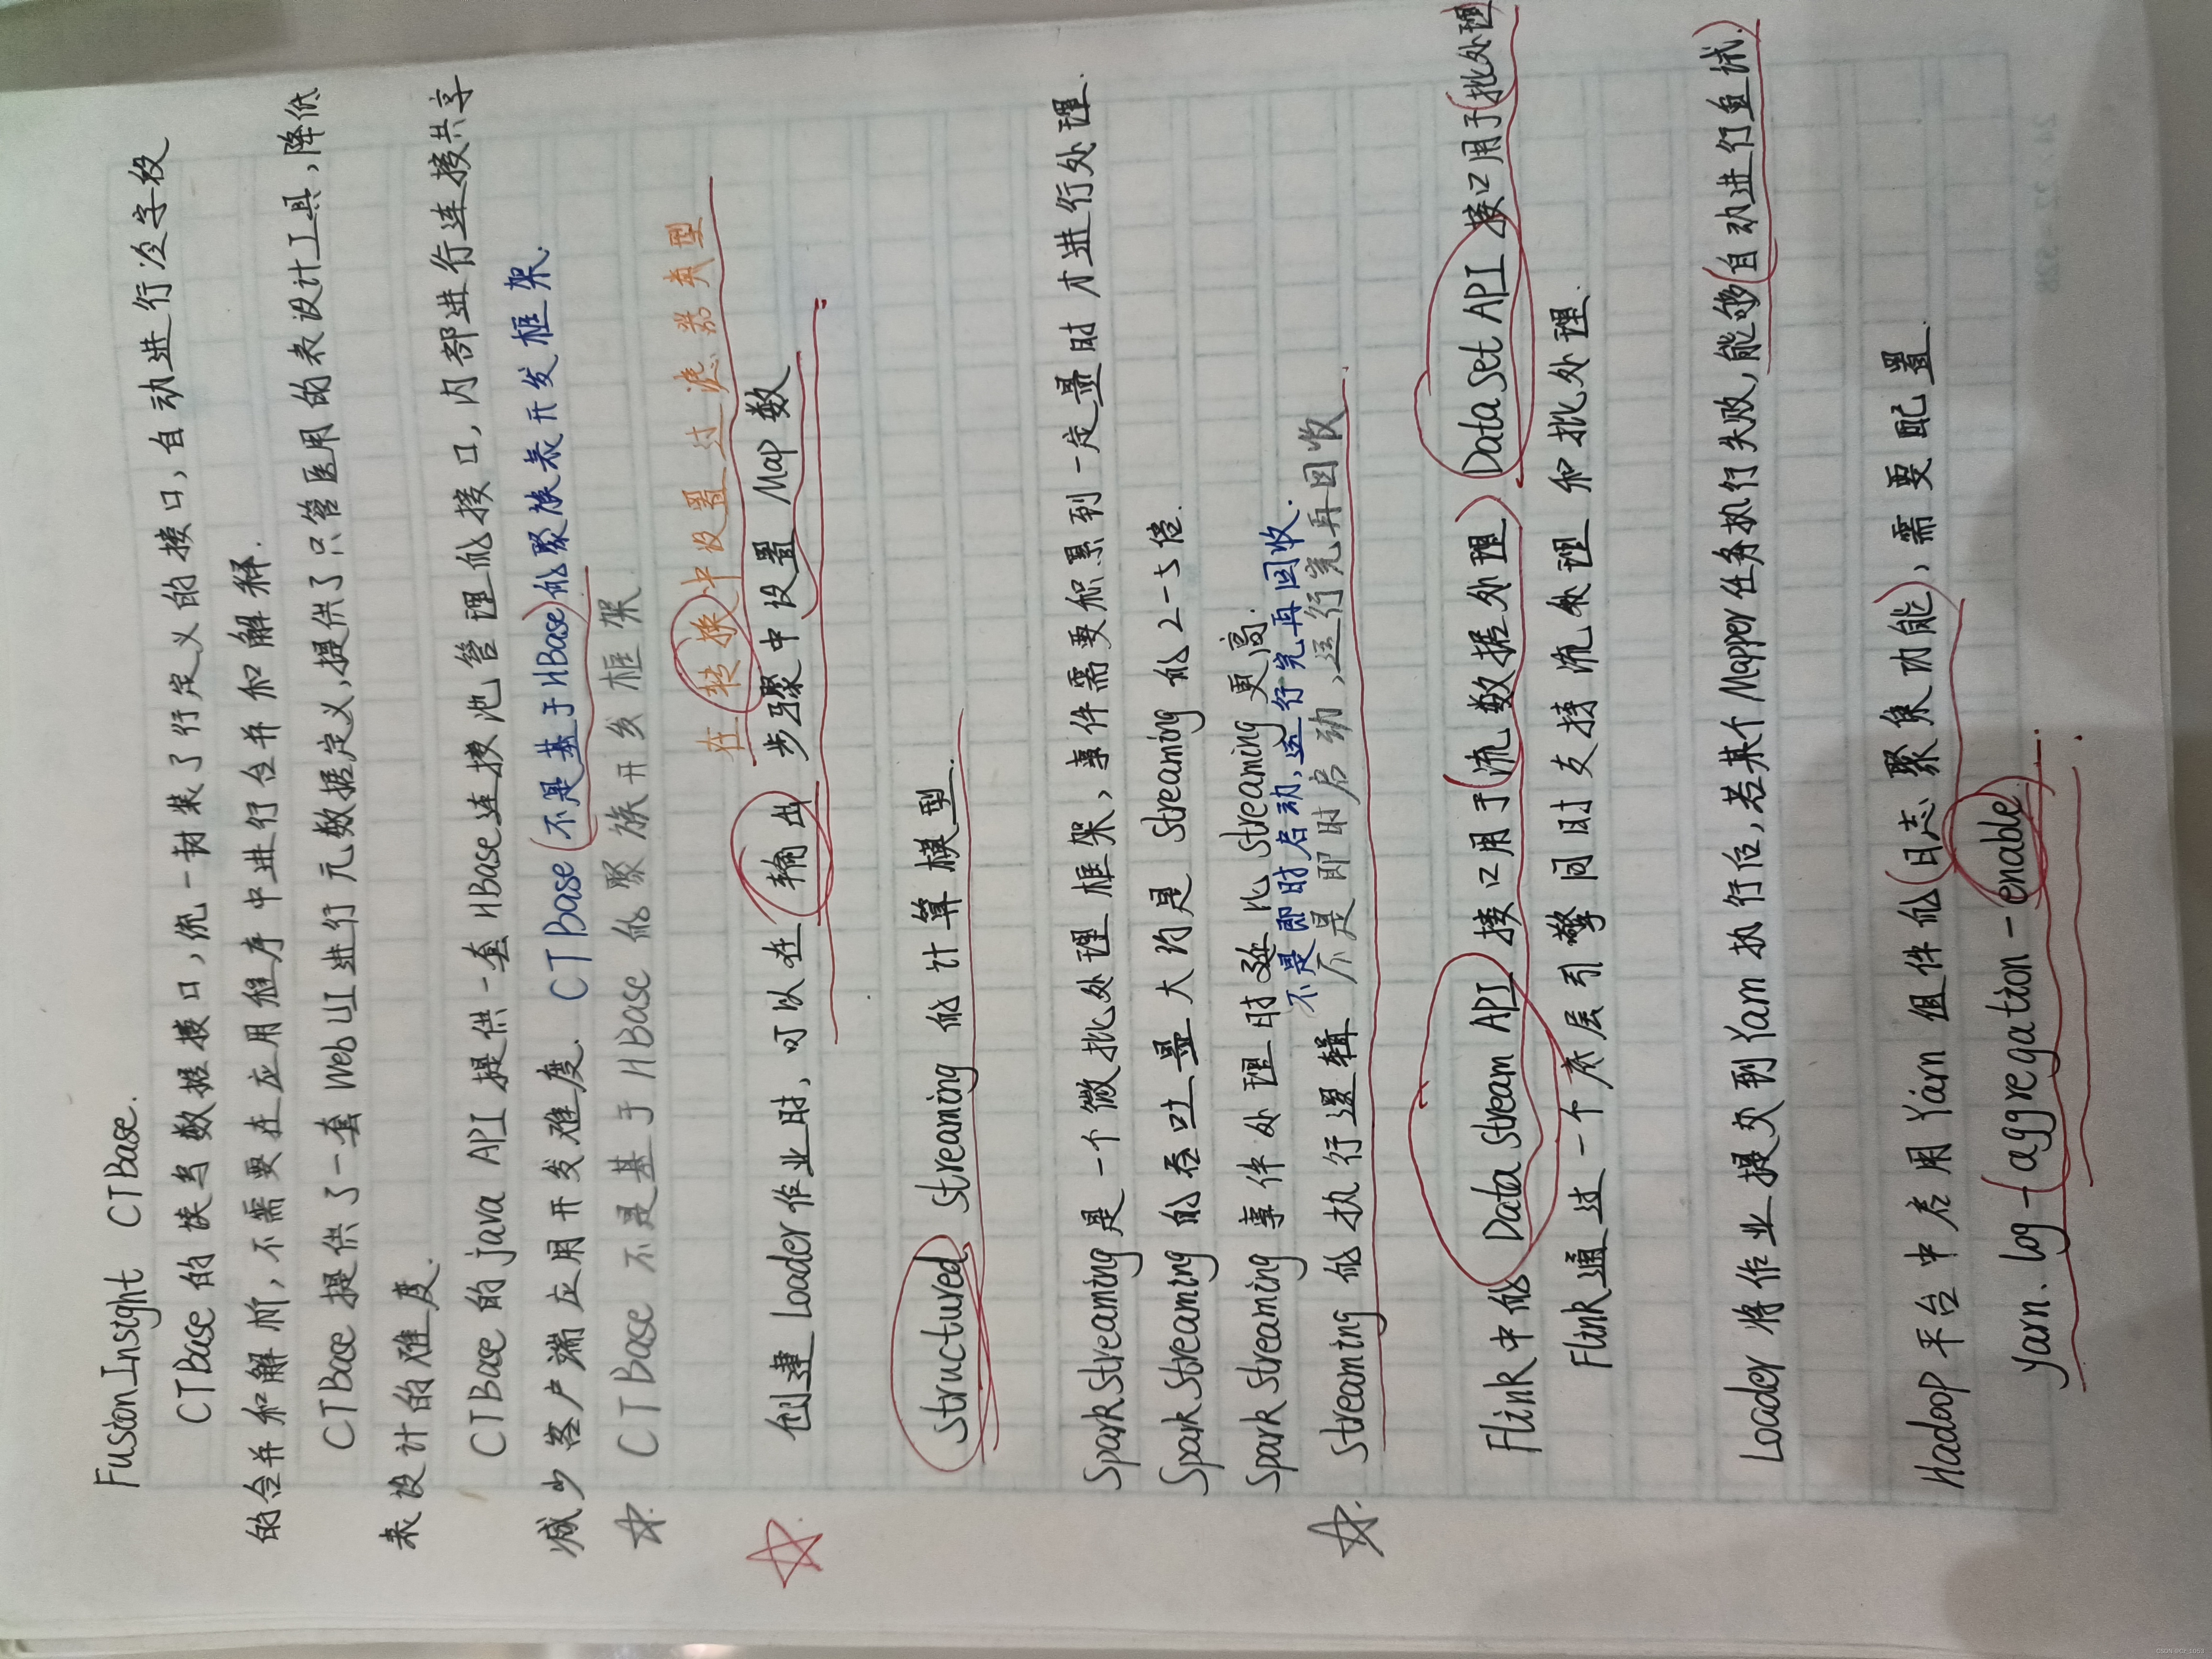 FusionInsight CTBase.
CTBase的读写数据接口,统一封装了行定义的接口,自动进行冷字段
的合并和解析,不需要在应用程序中进行合并和解释.
CTBase提供了一套Web UI进行元数据定义,提供了只管医用的表设计工具,降低
表设计的难度.
CTBase的java API提供一套HBase连接池管理的接口,内部进行连接共享
减少客户端应用开发难度. CTBase(不是基于HBase)的聚族表开发框架.
☆. CTBase不是基于HBase的聚族开发框架
在转换中设置过滤器类型
☆ 创建Loader作业时,可以在输出步骤中设置Map数
Structured Streaming的计算模型.
SparkStreaming是一个微批处理框架,事件需要积累到一定量时才进行处理.
SparkStreaming的吞吐量大约是Streaming的2-5倍.
SparkStreaming事件处理时延比Streaming更高.
不是即时启动,运行完再回收.
☆. Streaming的执行逻辑 不是即时启动,运行完再回收
Flink中的DataStream API接口用于(流数据处理) DataSet API接口用于(批处理
Flink通过一个底层引擎同时支持流处理和批处理.
Loader将作业提交到Yarn执行后,若某个Mapper任务执行失败,能够(自动进行重试.)
Hadoop平台中启用Yarn组件的(日志聚集功能),需要配置
yarn.log-(aggregation-enable.